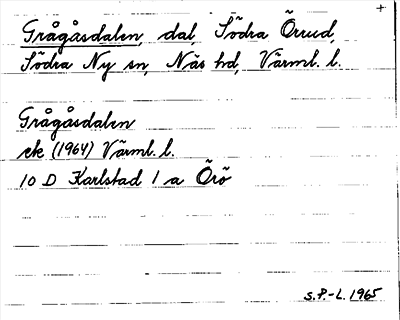 +
Grågåsdalen, dal, Södra Örrud,
Södra Ny sn, Näs hd, Värml. l.
Grågåsdalen
ek (1964) Värml. l.
10 D Karlstad 1 a Örö
S.P.-L. 1965